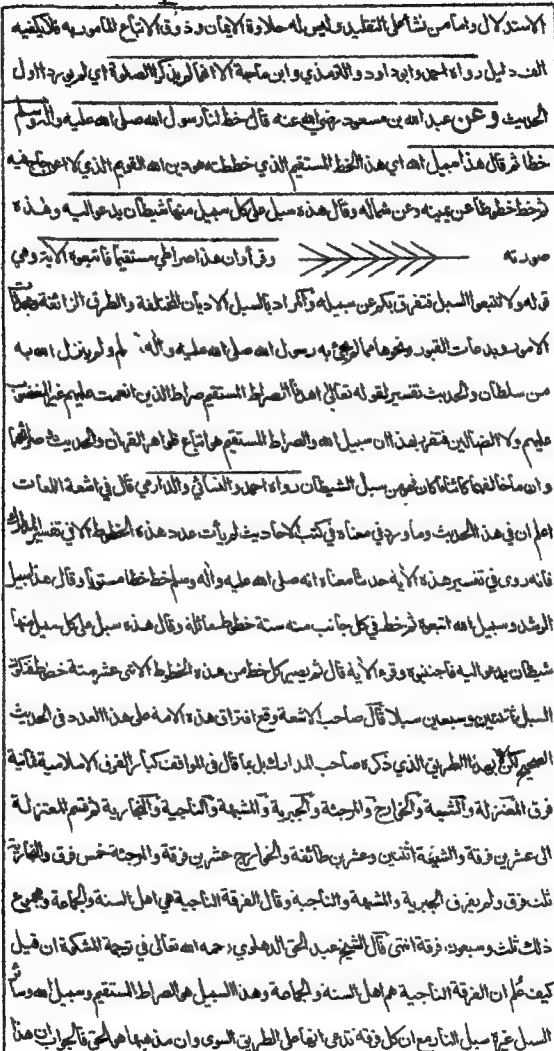 الاستدلال وامامن نشأ على التقليد وليس له حلاوة الايمان وذوق الاتباع للمأمور به فلا يكفيه
الف دليل رواه احمد وابو داود والترمذي وابن ماجة الا انهما لم يذكرا الصلوة اي لم يوردا اول
الحديث وعن عبد الله بن مسعود رضي الله عنه قال خط لنا رسول الله صلى الله عليه واله وسلم
خطا ثم قال هذا سبيل الله اي هذا الخط المستقيم الذي خططته هو دين الله القويم الذي لا اعوجاج فيه
ثم خط خطوطا عن يمينه وعن شماله وقال هذه سبل على كل سبيل منها شيطان يدعو اليه وهذه
صورته وقرأ وان هذا صراطي مستقيما فاتبعوه الاية وهي
قوله ولا تتبعوا السبل فتفرق بكم عن سبيله والمراد بالسبل الاديان المختلفة والطرق الزائغة
الامور وبدعات القبور ونحوها مما لم يجئ به رسول الله صلى الله عليه واله وسلم ولم ينزل الله به
من سلطان والحديث تفسير لقوله تعالى اهدنا الصراط المستقيم صراط الذين انعمت عليهم غير المغضوب
عليهم ولا الضالين فتقرر بهذا ان سبيل الله والصراط المستقيم هو اتباع ظواهر القران والحديث
وان ما خالفهما كائنا ما كان فهو من سبل الشيطان رواه احمد والنسائي والدارمي قال في اشعة اللمعات
اعلم ان في هذا الحديث وما ورد في معناه في كتب الاحاديث لم يأت عدد هذه الخطوط الا في تفسير المدارك
فانه روى في تفسير هذه الاية حديثا معناه انه صلى الله عليه واله وسلم خط خطا مستويا وقال هذا سبيل
الرشد وسبيل الله اتبعوه ثم خط في كل جانب منه ستة خطوط مائلة وقال هذه سبل على كل سبيل منها
شيطان يدعو اليه فاجتنبوه وقرء الاية قال ثم يصير كل خط من هذه الخطوط الاثنى عشر ستة خطوط فتكون
السبل اثنتين وسبعين سبيلا قال صاحب الاشعة وقع افتراق هذه الامة على هذا العدد في الحديث
الصحيح لكن لا بهذا الطريق الذي ذكره صاحب المدارك بل بما قال في المواقف كبار الفرق الاسلامية ثمانية
فرق المعتزلة والشيعة والخوارج والمرجئة والجبرية والمشبهة والناجية والنجارية ثم قسم المعتزلة
الى عشرين فرقة والشيعة اثنتين وعشرين طائفة والخوارج عشرين فرقة والمرجئة خمس فرق والنجارية
ثلث فرق ولم يفرق الجبرية والمشبهة والناجية وقال الفرقة الناجية هي اهل السنة والجماعة ومجموع
ذلك ثلث وسبعون فرقة انتهى قال الشيخ عبد الحق الدهلوي رحمه الله تعالى في ترجمة المشكوة ان قيل
كيف علم ان الفرقة الناجية هم اهل السنة والجماعة وهذا السبيل هو الصراط المستقيم وسبيل الله وسائر
السبل غيره سبل النار مع ان كل فرقة تدعي انها على الطريق السوي وان مذهبها هو الحق فالجواب ان هذا